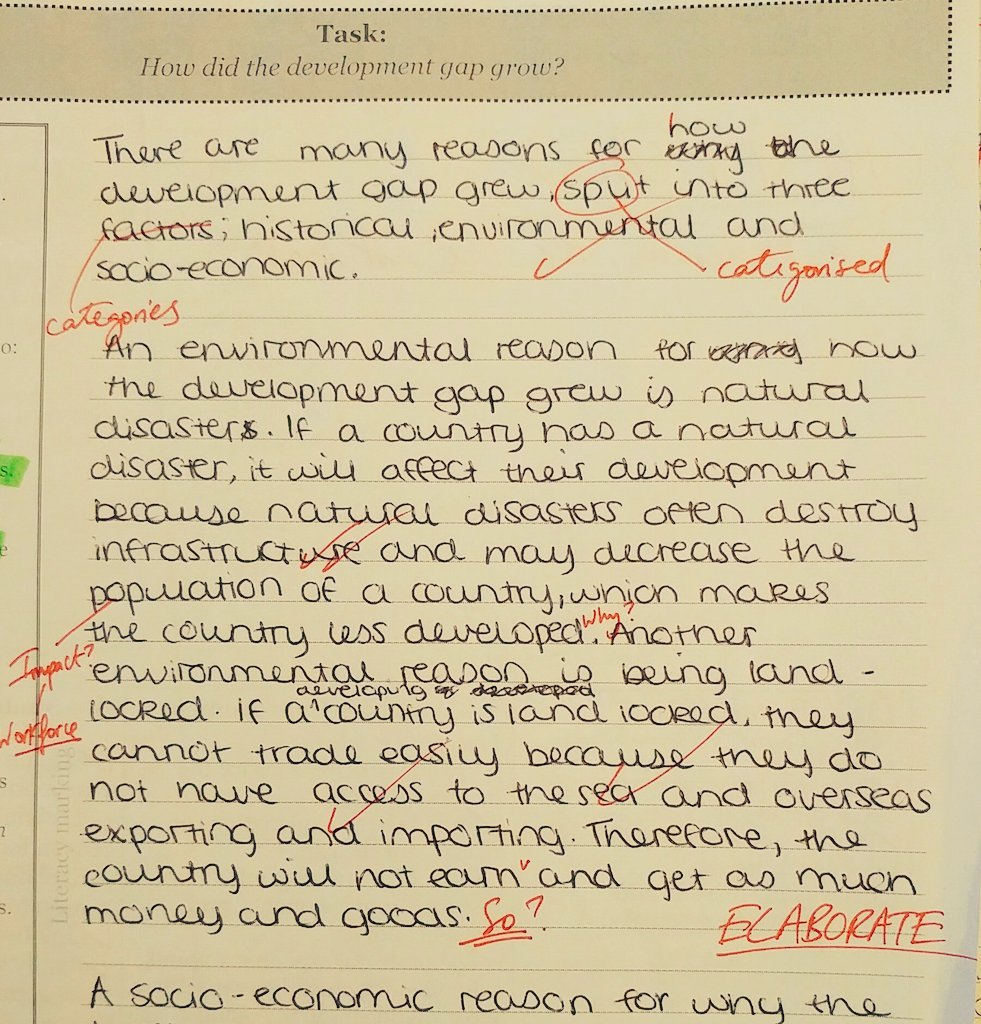 Task:
How did the development gap grow?
how
There are many reasons for the
development gap grew, split into three
factors; historical, environmental and
socio-economic.
categorised
categories
o:
An environmental reason for how
the development gap grew is natural
disasters. If a country has a natural
s.
disaster, it will affect their development
because natural disasters often destroy
e
infrastructure and may decrease the
population of a country, which makes
why?
the country less developed. Another
Impact?
environmental reason is being land-
developing developed
locked. if a ^ country is land locked, they
Workforce
cannot trade easily because they do
s
not have access to the sea and overseas
exporting and importing. Therefore, the
country will not earn and get as much
s.
money and goods. So?
ELABORATE
Literacy marking
A socio-economic reason for why the